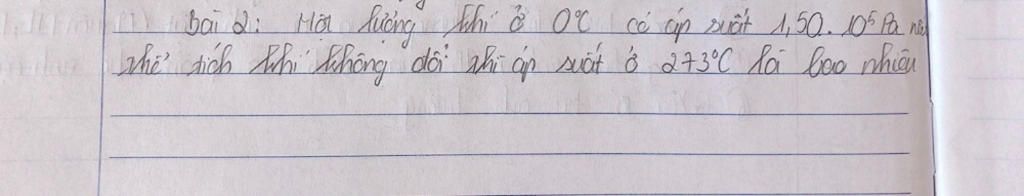 Bài 2: Một lượng khí ở 0°C có áp suất 1,50.10⁵ Pa nếu
thể tích khí không đổi thì áp suất ở 273°C là bao nhiêu